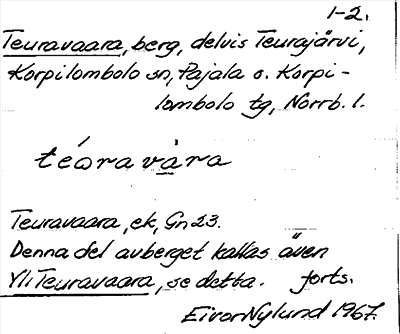 1-2.
Teuravaara, berg, delvis Teurajärvi,
Korpilombolo sn, Pajala o. Korpi-
lombolo tg, Norrb. l.
téoravàra
Teuravaara, ek, Gn 23.
Denna del av berget kallas även
Yli Teuravaara, se detta. forts.
Eivor Nylund 1967.